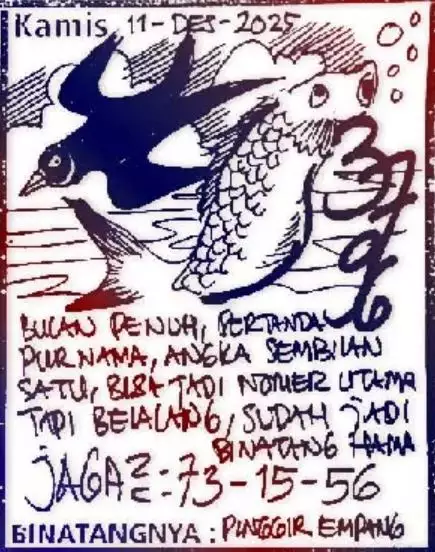 Kamis 11-DES-2025
3796
BULAN PENUH, PERTANDA
PURNAMA, ANGKA SEMBILAN
SATU, BISA JADI NOMER UTAMA
TAPI BELALANG, SUDAH JADI
BINATANG HAMA
JAGA2 = 73-15-56
BINATANGNYA : PINGGIR EMPANG